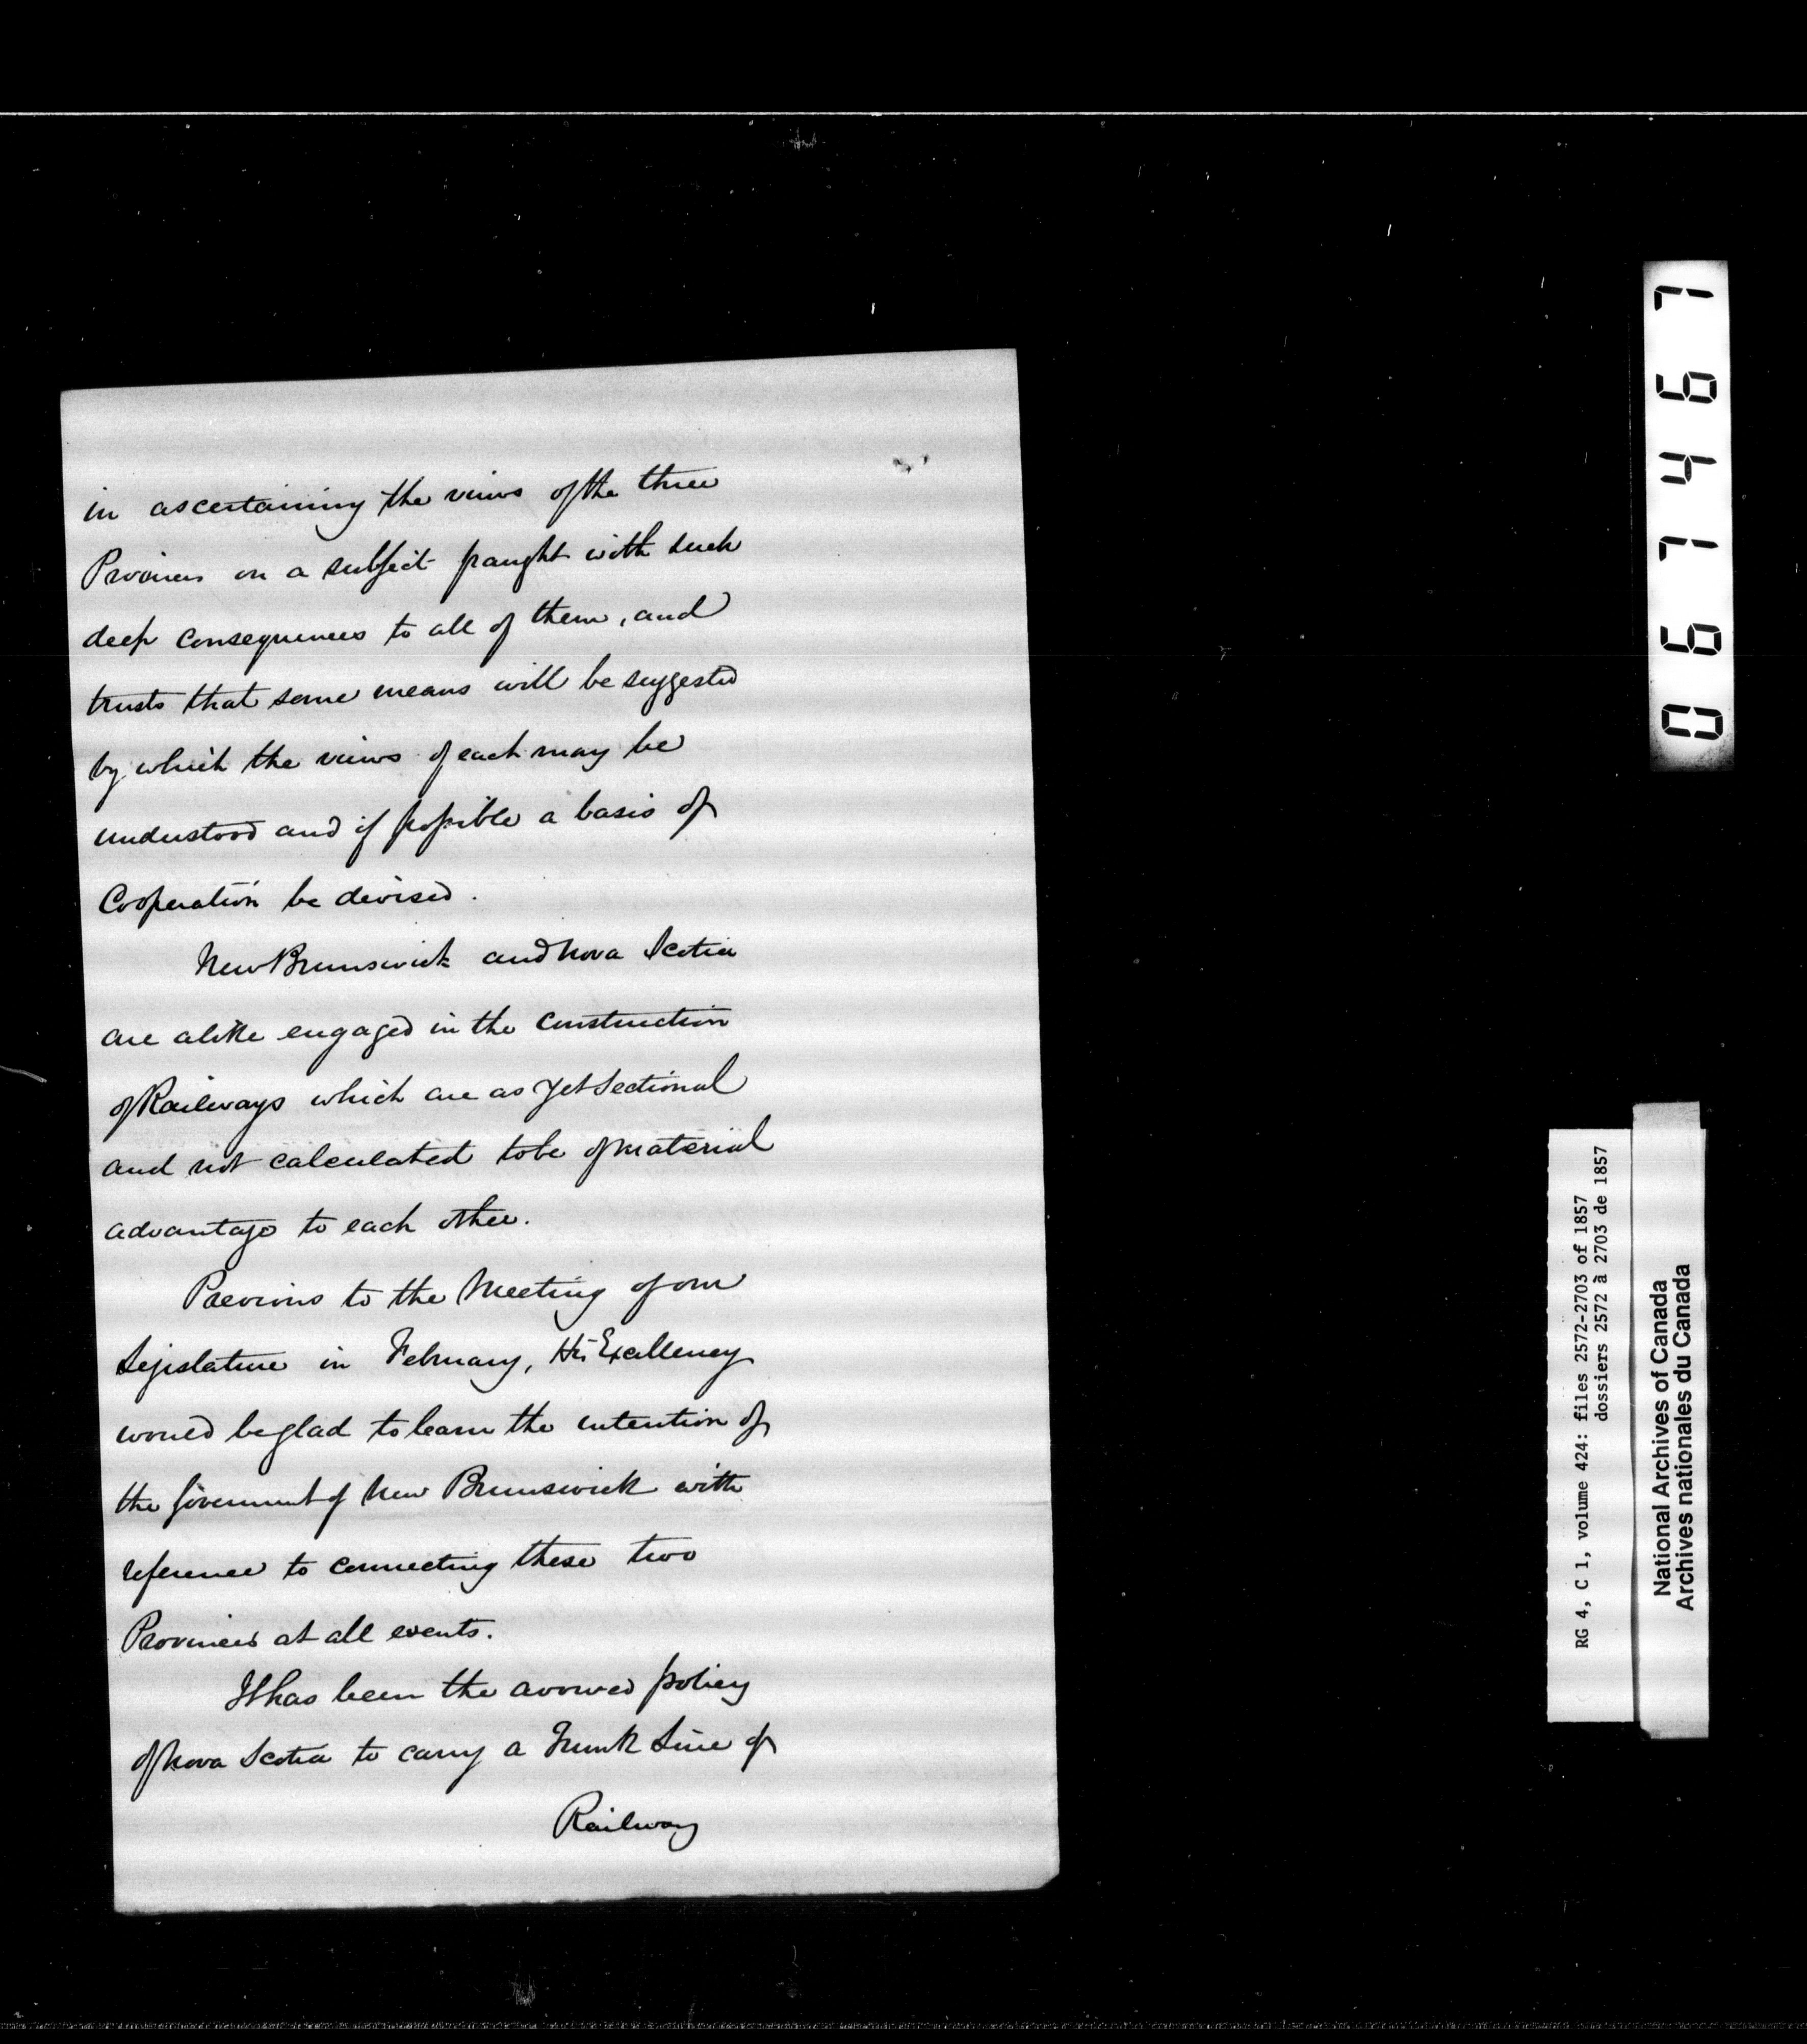 in ascertaining the views of the three
Provinces on a subject fraught with such
deep consequences to all of them, and
trusts that some means will be suggested
by which the views of each may be
understood and if possible a basis of
Cooperation be devised.
New Brunswick and Nova Scotia
are alike engaged in the construction
of Railways which are as yet sectional
and not calculated to be of material
advantage to each other.
Previous to the Meeting of our
Legislature in February, His Excellency
would be glad to learn the intention of
the Government of New Brunswick with
reference to connecting these two
Provinces at all events.
It has been the avowed policy
of Nova Scotia to carry a Trunk Line of
Railway
067467
RG 4, C 1, volume 424: files 2572-2703 of 1857
dossiers 2572 à 2703 de 1857
National Archives of Canada
Archives nationales du Canada